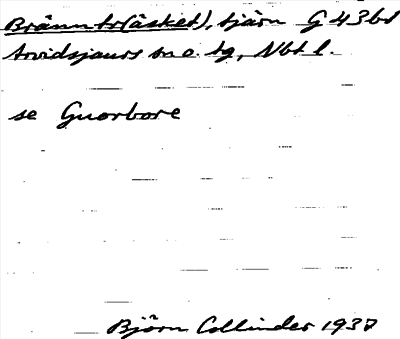 Bränntr(äsket), tjärn G 43bd
Arvidsjaurs sn o. tg, Nbt l.
se Guorbore
Björn Collinder 1937